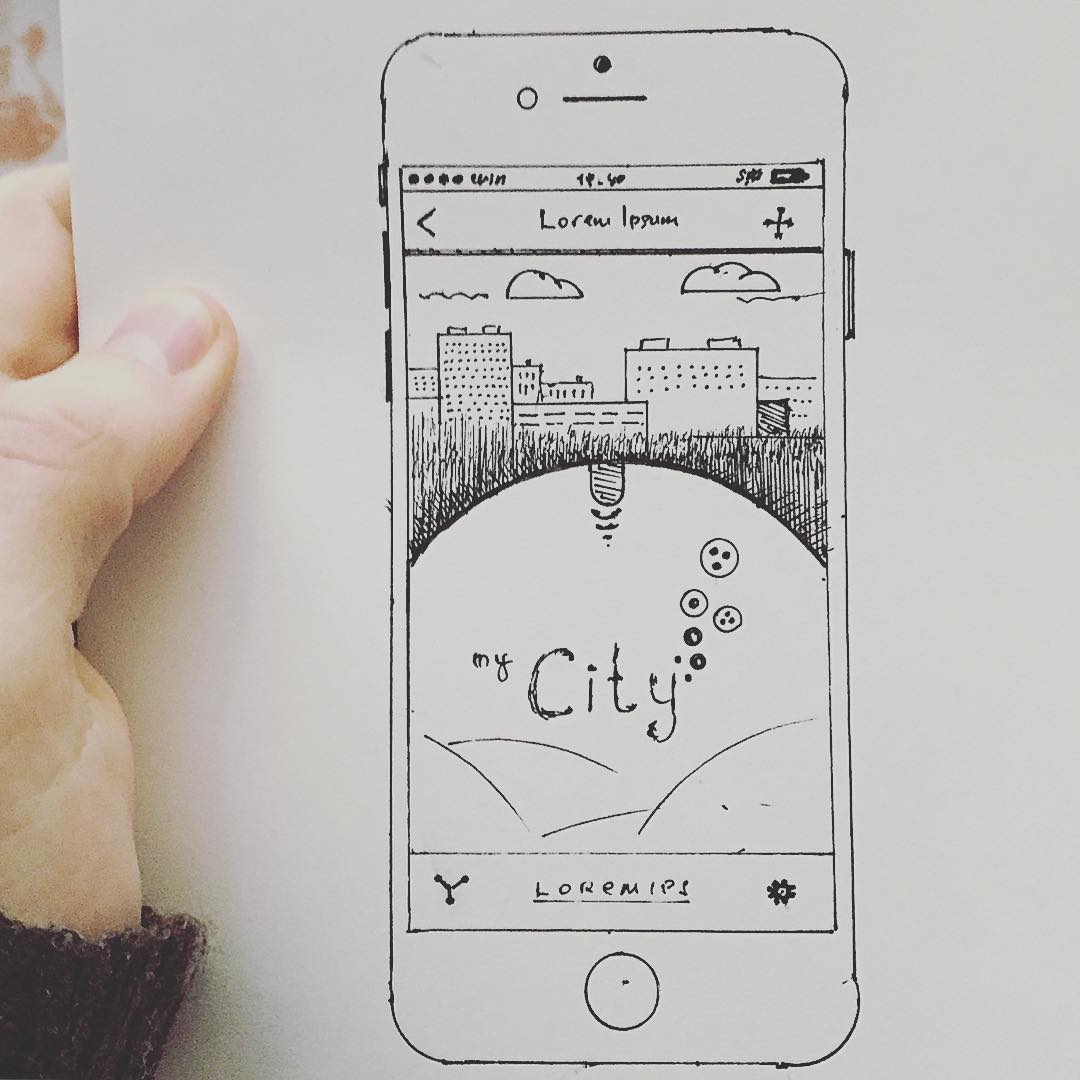 WIN
Lorem Ipsum
my City
LOREMIPS